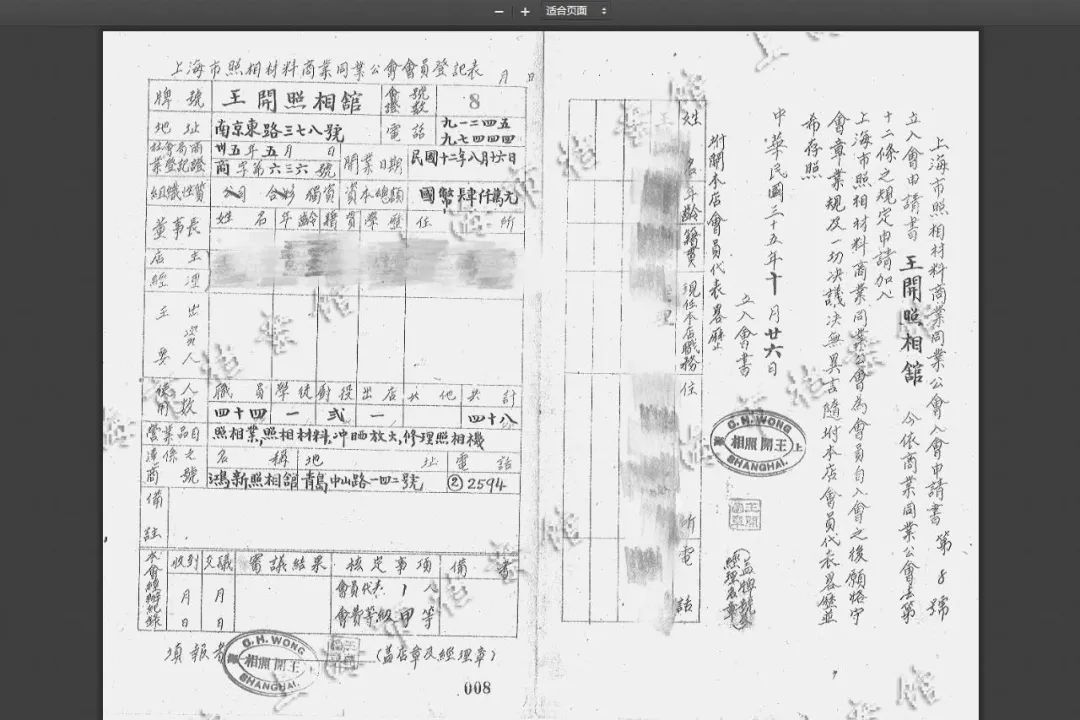 适合页面
上海市照相材料商業同業公會會員登記表 月 日
牌號 王開照相舘 會證號數 8
地址 南京東路三七八號 電話 九一二四五 九七四四四
社會局商業登記證 卅五年五月 日 商字第六三六號 開業日期 民國十二年八月十六日
組織性質 公司 合夥 獨資 資本總額 國幣長肆仟萬元
董事長 姓名 年齡 籍貫 學歷 住所
店主
經理
主要出資人
使用人數 職員 學徒 廚役 出店 其他 共計
四十四 一 弍 一 四十八
營業品目 照相業,照相材料,冲晒放大,修理照相機
連係之商號 名稱 地址 電話
鴻新照相舘 青島中山路一四二號 ②2594
備註
本會經辦紀錄 收到 交議 審議結果 核定事項 備書
月 月 會員代表 1 人
日 日 會費等級 甲等
填報者 (蓋店章及經理章)
G.H.WONG
王開照相
SHANGHAI.
008
上海市照相材料商業同業公會入會申請書 第8號
立入會申請書 王開照相舘 今依商業同業公會法第
十二條之規定申請加入
上海市照相材料商業同業公會為會員自入會之後願恪守
會章業規及一切决議决無異言隨附本店會員代表畧歷並
希存照
中華民國三十五年十月廿六日
立入會書
附開本店會員代表畧歷
姓名 年齡 籍貫 現任本店職務 住所 電話
G.H.WONG
上 王開照相 海
SHANGHAI.
(蓋牌號及經理店章)
上海市档案馆